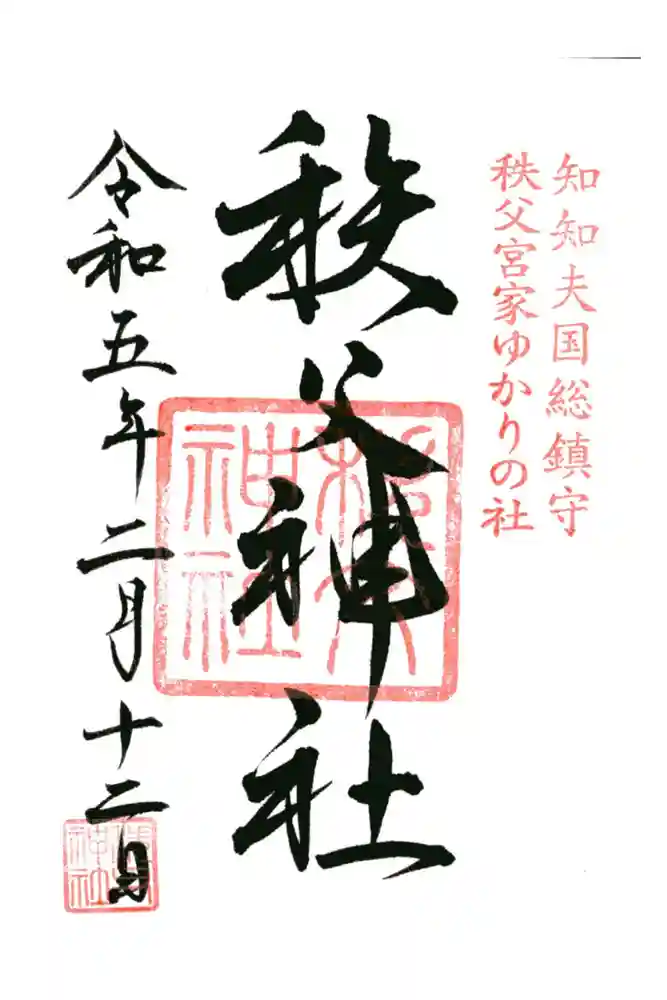 知知夫国総鎮守
秩父宮家ゆかりの社
秩父神社
秩父神社
令和五年二月十二日